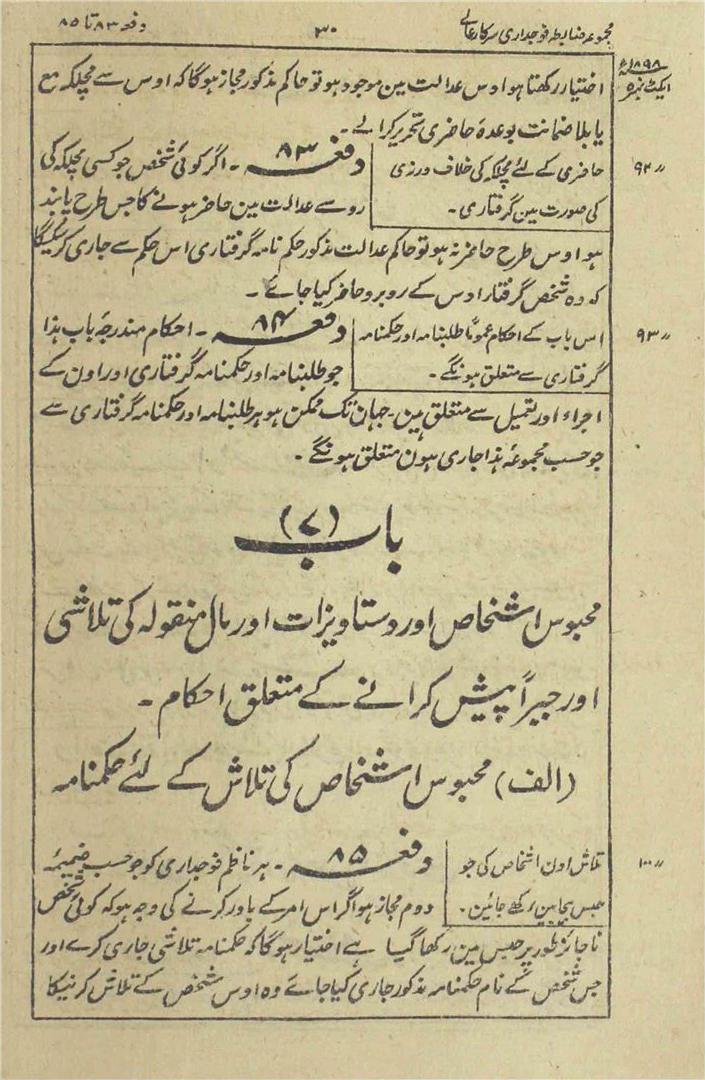 مجموعہ ضابطہ فوجداری سرکارعالی
۳۰
دفعہ ۸۳ تا ۸۵
۱۸۹۸ء
ایکٹ نمبر ۵
اختیار رکھتا ہو اوس عدالت مین موجود ہو تو حاکم مذکور مجاز ہوگا کہ اوس سے مچلکہ مع
یا بلا ضمانت بوعدہ حاضری تحریر کرا لے۔
〃 ۹۲
حاضری کے لئے مچلکہ کی خلاف ورزی
کی صورت مین گرفتاری۔
دفعہ ۸۳۔ اگر کوئی شخص جو کسی مچلکہ کی
رو سے عدالت مین حاضر ہونے کا جس طرح پابند
ہو اوس طرح حاضر نہ ہو تو حاکم عدالت مذکور حکم نامہ گرفتاری اس حکم سے جاری کر سکیگا
کہ وہ شخص گرفتار اوس کے روبرو حاضر کیا جائے۔
〃 ۹۳
اس باب کے احکام عموماً طلبنامہ اور حکمنامہ
گرفتاری سے متعلق ہونگے۔
دفعہ ۸۴۔ احکام مندرجہ باب ہذا
جو طلبنامہ اور حکمنامہ گرفتاری اور اون کے
اجراء اور تعمیل سے متعلق ہین۔ جہان تک ممکن ہو ہر طلبنامہ اور حکمنامہ گرفتاری سے
جو حسب مجموعہ ہذا جاری ہون متعلق ہونگے۔
باب (۷)
محبوس اشخاص اور دستاویزات اور مال منقولہ کی تلاشی
اور جبراً پیش کرانے کے متعلق احکام۔
(الف) محبوس اشخاص کی تلاش کے لئے حکمنامہ
〃 ۱۰۰
تلاش اون اشخاص کی جو
حبس بیجا مین رکھے جائین۔
دفعہ ۸۵۔ ہر ناظم فوجداری کو جو حسب ضمیمۂ
دوم مجاز ہو اگر اس امر کے باور کرنے کی وجہ ہو کہ کوئی شخص
ناجائز طور پر حبس مین رکھا گیا ہے اختیار ہوگا کہ حکمنامہ تلاشی جاری کرے اور
جس شخص کے نام حکمنامہ مذکور جاری کیا جائے وہ اوس شخص کے تلاش کرنیکا